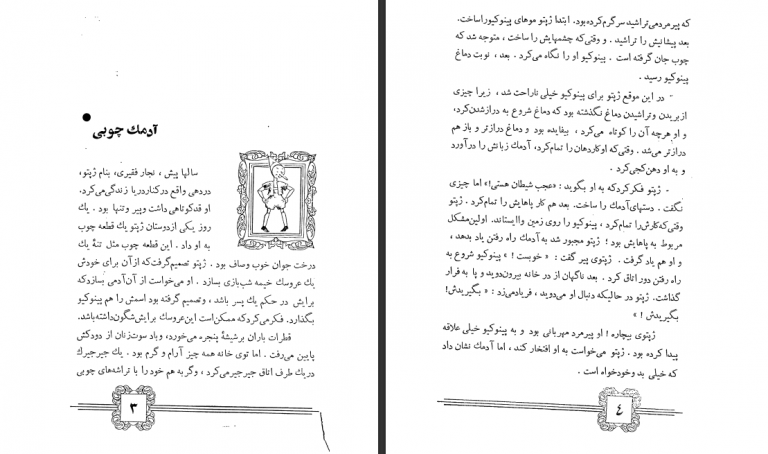 آدمك چوبی
سالها پیش ، نجار فقیری، بنام ژپتو،
دردهی واقع درکناردریا زندگی‌می‌کرد.
او قدکوتاهی داشت وپیر وتنها بود . یك
روز یکی ازدوستان ژپتو یك قطعه چوب
به او داد . این قطعه چوب مثل تنهٔ یك
درخت جوان خوب وصاف بود . ژپتو تصمیم‌گرفت‌که ازآن برای خودش
یك عروسك خیمه شب‌بازی بسازد . او می‌خواست از آن‌آدمی بسازدکه
برایش در حکم یك پسر باشد ، وتصمیم گرفته بود اسمش را هم پینوکیو
بگذارد. فکرمی‌کردکه ممکن‌است این‌عروسك برایش‌شگون‌داشته‌باشد.
قطرات باران برشیشهٔ پنجره می‌خورد، وباد سوت‌زنان از دودکش
پایین می‌رفت . اما توی خانه همه چیز آرام و گرم بود . یك جیرجیرك
دریك طرف اتاق جیرجیرمی‌کرد ، وگربه هم خود را با تراشه‌های چوبی
۳
که پیرمردمی‌تراشید سرگرم‌کرده‌بود. ابتدا ژپتو موهای پینوکیوراساخت.
بعد پیشانیش را تراشید . و وقتی‌که چشمهایش را ساخت ، متوجه شد که
چوب جان گرفته است . پینوکیو او را نگاه می‌کرد . بعد ، نوبت دماغ
پینوکیو رسید .
در این موقع ژپتو برای پینوکیو خیلی ناراحت شد ، زیرا چیزی
ازبریدن وتراشیدن دماغ نگذشته بود که دماغ شروع به درازشدن‌کرد،
و او هرچه آن را کوتاه می‌کرد ، بیفایده بود و دماغ درازتر و باز هم
درازتر می‌شد . وقتی‌که اوکاردهان را تمام‌کرد، آدمك زبانش را درآورد
و به او دهن‌کجی‌کرد .
ژپتو فکرکردکه به او بگوید : «عجب شیطان هستی!» اما چیزی
نگفت . دستهای‌آدمك را ساخت. بعد هم کار پاهایش را تمام‌کرد . ژپتو
وقتی‌که‌کارش‌راتمام‌کرد ، پینوکیو را روی زمین واایستاند. اولین‌مشکل
مربوط به پاهایش بود ! ژپتو مجبور شد به آدمك راه رفتن یاد بدهد ،
و او هم یاد گرفت . ژپتوی پیر گفت : « خوبست ! » پینوکیو شروع به
راه رفتن دور اتاق کرد . بعد ناگهان از در خانه بیرون‌دوید و پا به فرار
گذاشت. ژپتو در حالیکه دنبال او می‌دوید ، فریادمی‌زد : « بگیریدش!
بگیریدش ! »
ژپتوی بیچاره ! او پیرمرد مهربانی بود و به پینوکیو خیلی علاقه
پیدا کرده بود . ژپتو می‌خواست به او افتخار کند ، اما آدمك نشان داد
که خیلی بد وخودخواه است .
٤